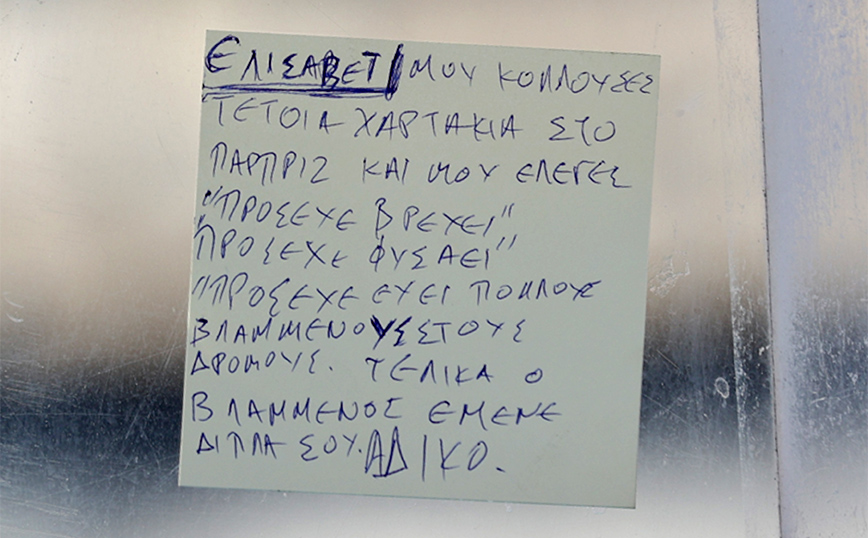 ΕΛΙΣΑΒΕΤ/ ΜΟΥ ΚΟΛΛΟΥΣΕΣ
ΤΕΤΟΙΑ ΧΑΡΤΑΚΙΑ ΣΤΟ
ΠΑΡΠΡΙΖ ΚΑΙ ΜΟΥ ΕΛΕΓΕΣ
"ΠΡΟΣΕΧΕ ΒΡΕΧΕΙ"
"ΠΡΟΣΕΧΕ ΦΥΣΑΕΙ"
"ΠΡΟΣΕΧΕ ΕΧΕΙ ΠΟΛΛΟΥΣ
ΒΛΑΜΜΕΝΟΥΣ ΣΤΟΥΣ
ΔΡΟΜΟΥΣ. ΤΕΛΙΚΑ Ο
ΒΛΑΜΜΕΝΟΣ ΕΜΕΝΕ
ΔΙΠΛΑ ΣΟΥ. ΑΔΙΚΟ.